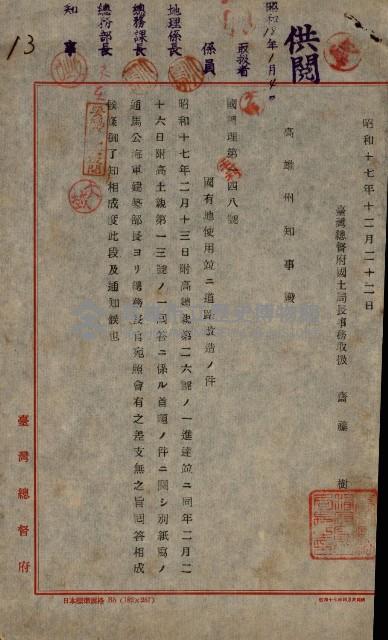 供閲
昭和18年1月4日
取扱者
係員
地理係長
總務課長
總務部長
知事
13
昭和十七年十二月二十二日
臺灣總督府國土局長事務取扱 齋藤 樹
高雄州知事殿
國土理第 四八號
國有地使用竝ニ道路改造ノ件
昭和十七年二月十三日附高總地第二六號ノ一進達竝ニ同年二月二
十六日附高土親第一三號ノ一回答ニ係ル首題ノ件ニ關シ別紙寫ノ
通馬公海軍建築部長ヨリ總務長官宛照會有之差支無之旨回答相成
候條御了知相成度此段及通知候也
臺灣總督府
日本標準規格 B5 (182×257)